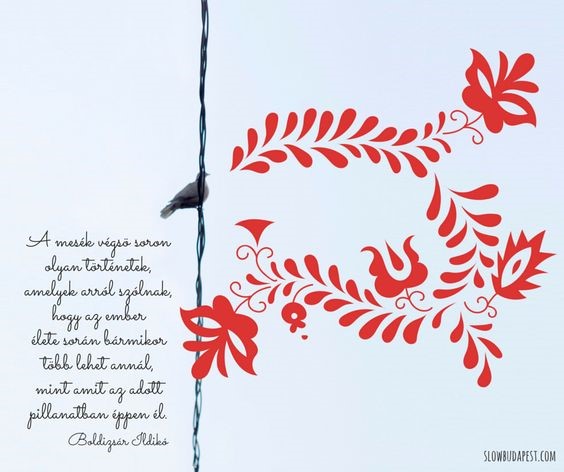 A mesék végső soron
olyan történetek,
amelyek arról szólnak,
hogy az ember
élete során bármikor
több lehet annál,
mint amit az adott
pillanatban éppen él.
Boldizsár Ildikó
SLOWBUDAPEST.COM